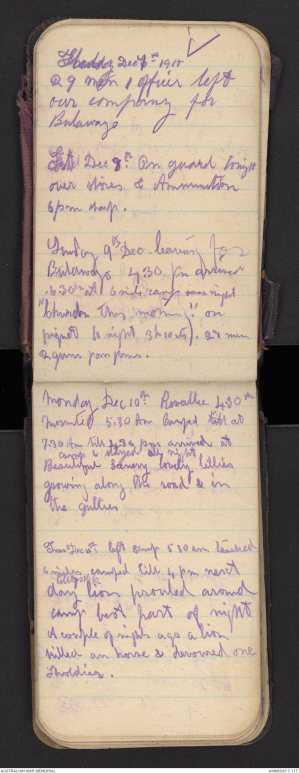 Dec 7th 1900
29 men 1 officer left
our company for
Bulawayo
Sat Dec 8th On guard tonight
over stores & Ammunition
6 pm sharp.
Sunday 9th Dec. leaving for
Bulawayo 4.30 pm arrived
6.30 at 6 mile camp same night
"Church This morning" on
night
2 guns pom poms.
Monday Dec 10th Reveille 4.30 am
mounted 5.30 Am Camped at
7.30 Am till 4.30 pm arrived at
camp & stayed all night
Beautiful Scenery lovely lillies
growing along the road & in
the gullies
Tues Dec 11th left camp 5.30 am
6 miles camped till 4 pm next
day lion prowled around
camp best part of night
A couple of nights ago a lion
killed an horse & devoured one
AUSTRALIAN WAR MEMORIAL